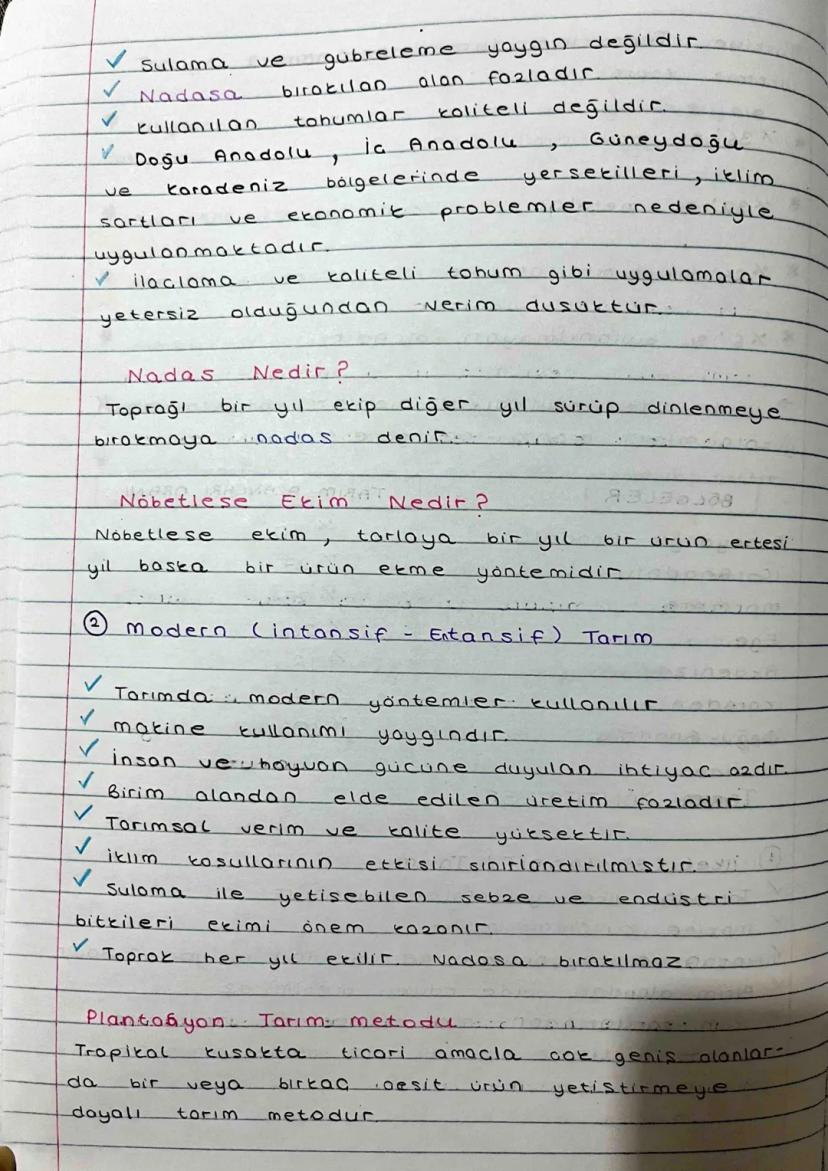 ✓ Sulama ve gübreleme yaygın değildir.
✓ Nadasa bırakılan alan fazladır.
✓ Kullanılan tohumlar kaliteli değildir.
✓ Doğu Anadolu, İc Anadolu, Güneydoğu
ve Karadeniz bölgelerinde yersekilleri, iklim
sartları ve ekonomik problemler nedeniyle
uygulanmaktadır.
✓ ilaclama ve kaliteli tohum gibi uygulamalar
yetersiz olduğundan verim dusuktur.
Nadas Nedir?
Toprağı bir yıl ekip diğer yıl sürüp dinlenmeye
bırakmaya nadas denir.
Nöbetlese Ekim Nedir?
Nöbetlese ekim, tarlaya bir yıl bir urun ertesi
yil baska bir ürün ekme yöntemidir.
② Modern (intansif - Entansif) Tarım
✓ Tarımda modern yöntemler kullanılır
✓ makine kullanımı yaygındır.
✓ insan ve hayvan gücüne duyulan ihtiyac azdır.
✓ Birim alandan elde edilen üretim fazladır.
✓ Tarımsal verim ve kalite yüksektir.
✓ iklim kosullarının etkisi sınırlandırılmıstır.
✓ Sulama ile yetisebilen sebze ve endüstri
bitkileri ekimi önem kazanır.
✓ Toprak her yıl ekilir. Nadasa bırakılmaz
Plantasyon Tarım metodu
Tropikal kusakta ticari amacla cok genis alanlar-
da bir veya birkac cesit ürün yetistirmeye
dayalı tarım metodur.